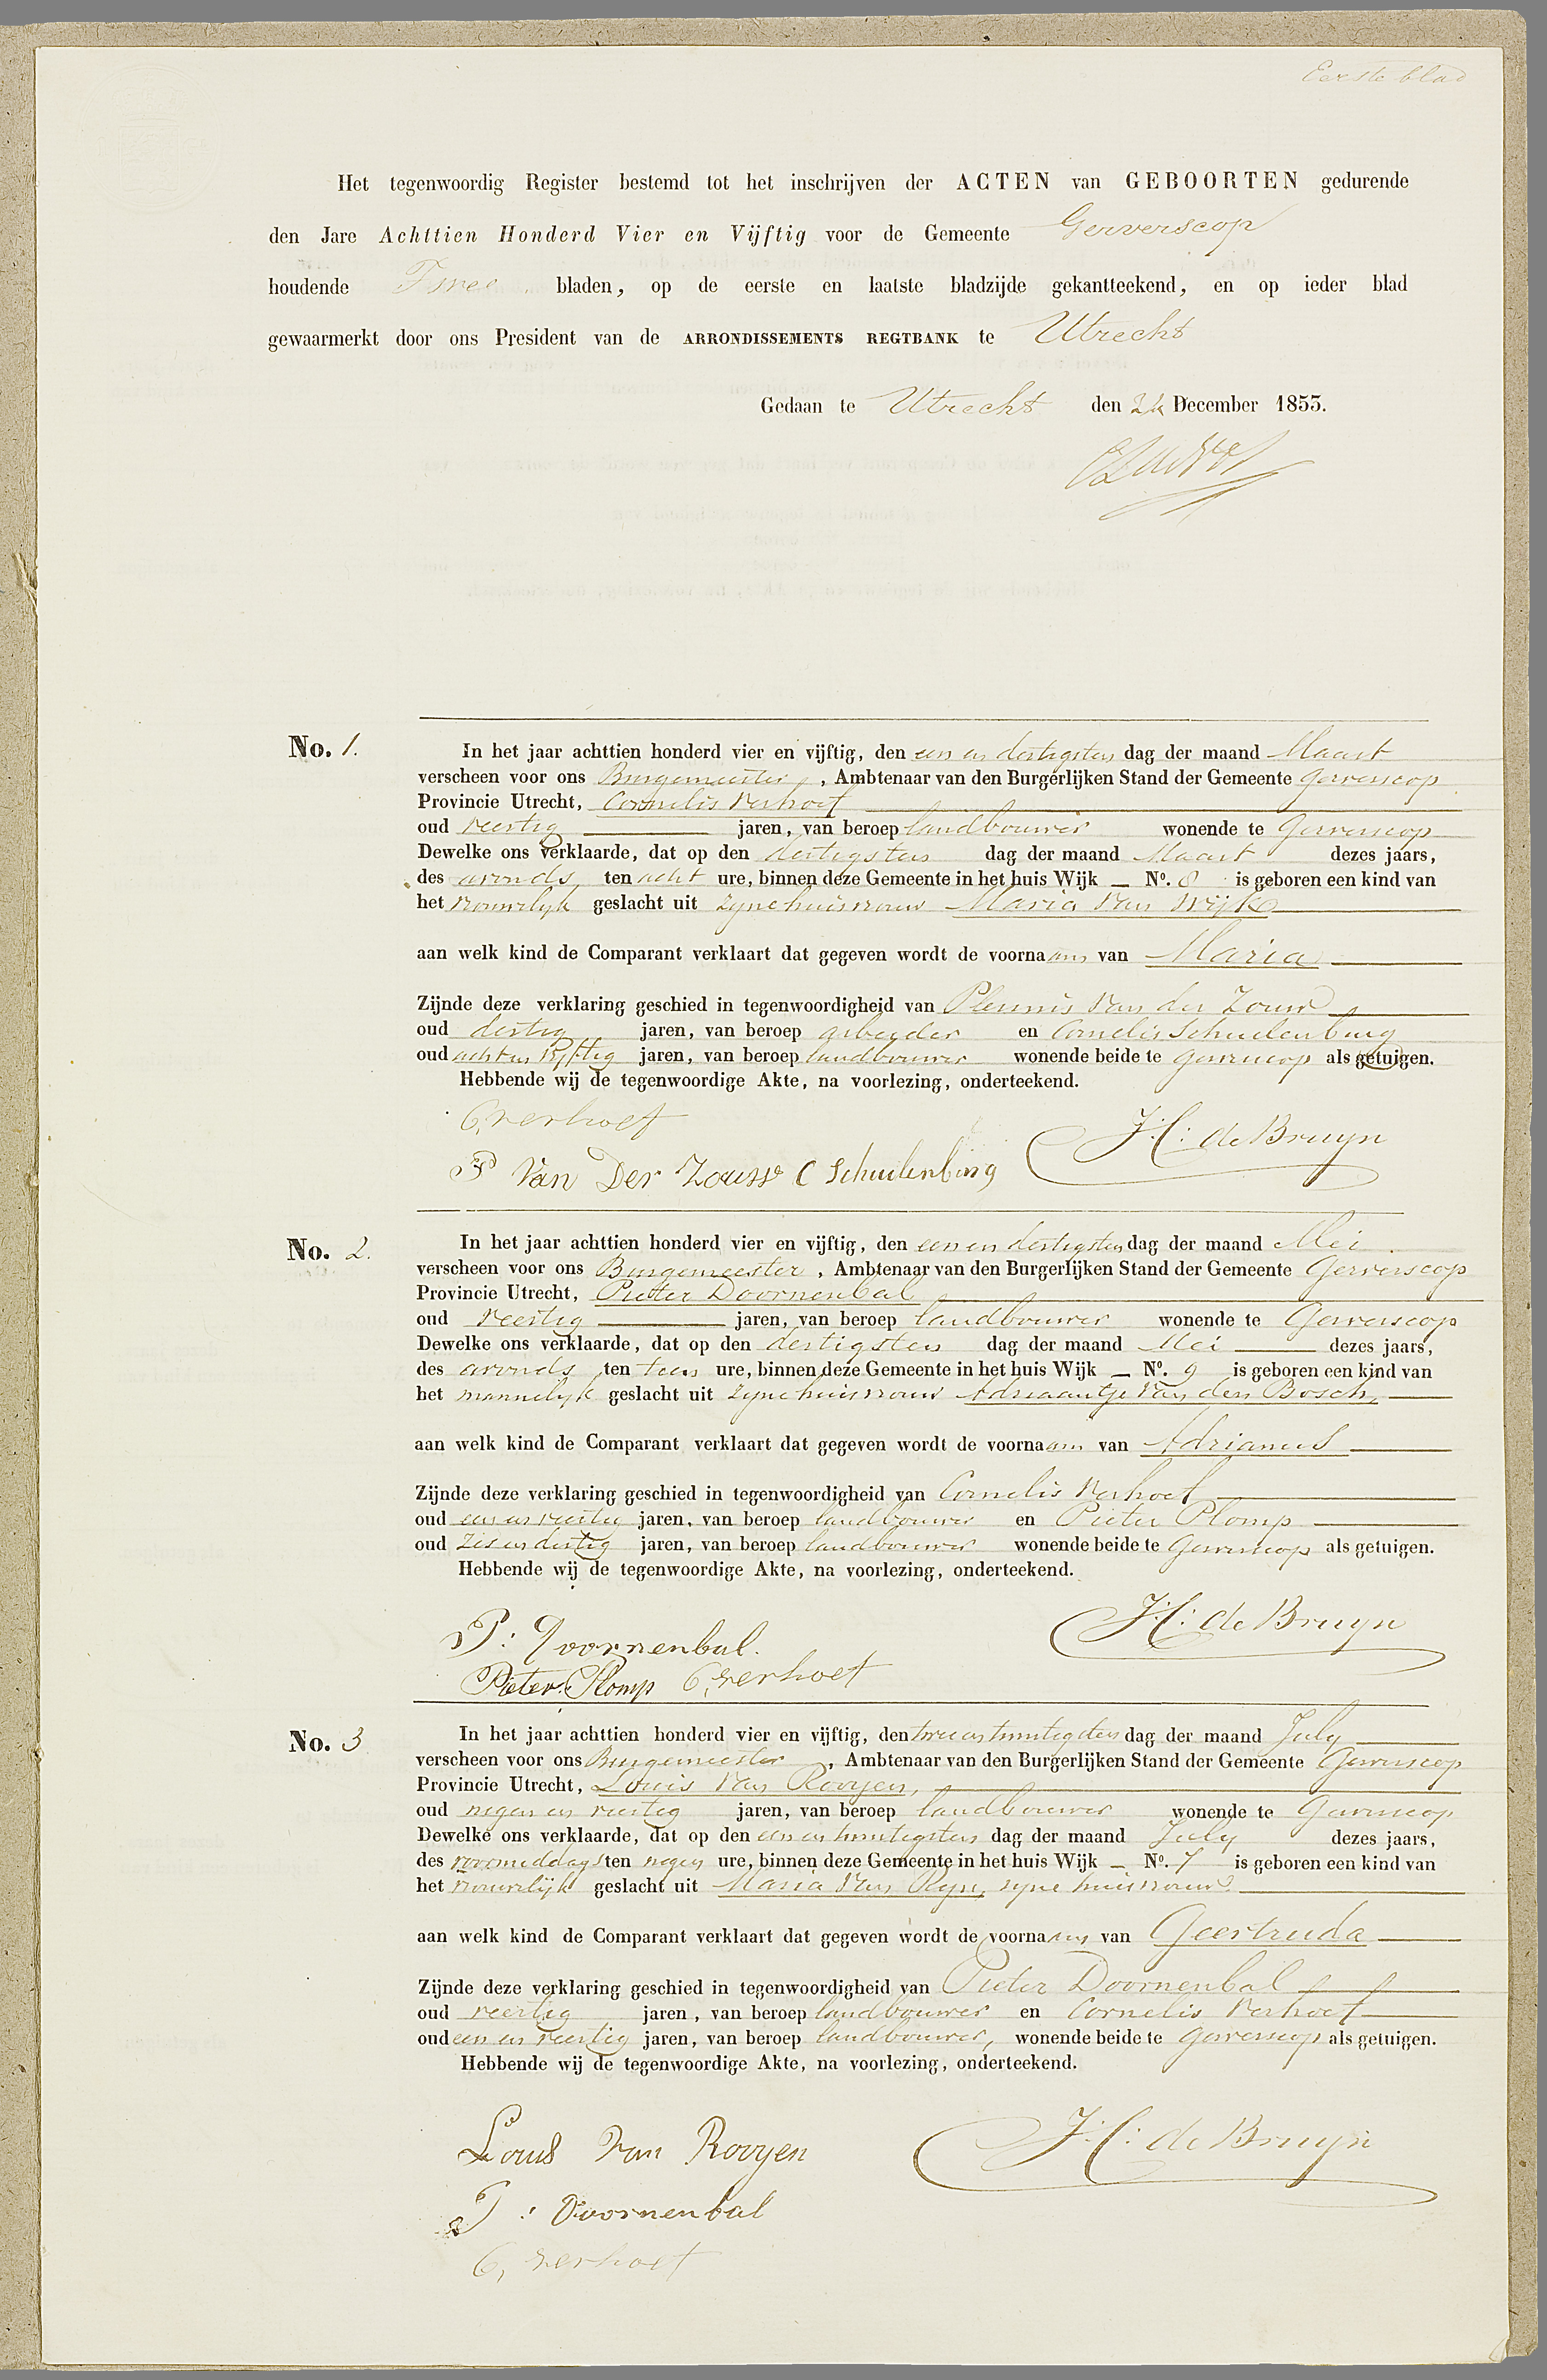 Eerste blad
Het tegenwoordig Register bestemd tot het inschrijven der ACTEN van GEBOORTEN gedurende
den Jare Achttien Honderd Vier en Vijftig voor de Gemeente Gerverscop
houdende Twee bladen, op de eerste en laatste bladzijde gekantteekend, en op ieder blad
gewaarmerkt door ons President van de ARRONDISSEMENTS REGTBANK te Utrecht
Gedaan te Utrecht den 24 December 1853.
No. 1. In het jaar achttien honderd vier en vijftig, den een en dertigsten dag der maand Maart
verscheen voor ons Burgemeester, Ambtenaar van den Burgerlijken Stand der Gemeente Gerverscop
Provincie Utrecht, Cornelis Verhoef
oud veertig jaren, van beroep landbouwer wonende te Gerverscop
Dewelke ons verklaarde, dat op den dertigsten dag der maand Maart dezes jaars,
des avonds ten acht ure, binnen deze Gemeente in het huis Wijk — No. 8 is geboren een kind van
het vrouwelyk geslacht uit zyne huisvrouw Maria van Wijk
aan welk kind de Comparant verklaart dat gegeven wordt de voornaam van Maria
Zijnde deze verklaring geschied in tegenwoordigheid van Plennis van der Zouw
oud dertig jaren, van beroep arbeyder en Cornelis Schuilenburg
oud acht en vyftig jaren, van beroep landbouwer wonende beide te Gerverscop als getuigen.
Hebbende wij de tegenwoordige Akte, na voorlezing, onderteekend.
C, verhoef
J:C: de Bruyn
P Van Der Zouw C Schuilenburg
No. 2. In het jaar achttien honderd vier en vijftig, den een en dertigsten dag der maand Mei
verscheen voor ons Burgemeester, Ambtenaar van den Burgerlijken Stand der Gemeente Gerverscop
Provincie Utrecht, Pieter Doornenbal
oud veertig jaren, van beroep landbouwer wonende te Gerverscop
Dewelke ons verklaarde, dat op den dertigsten dag der maand Mei dezes jaars,
des avonds ten tien ure, binnen deze Gemeente in het huis Wijk — No. 9 is geboren een kind van
het mannelyk geslacht uit zyne huisvrouw Adriaantje van den Bosch,
aan welk kind de Comparant verklaart dat gegeven wordt de voornaam van Adrianus
Zijnde deze verklaring geschied in tegenwoordigheid van Cornelis Verhoef
oud een en veertig jaren, van beroep landbouwer en Pieter Plomp
oud zes en dertig jaren, van beroep landbouwer wonende beide te Gerverscop als getuigen.
Hebbende wij de tegenwoordige Akte, na voorlezing, onderteekend.
P: Doornenbal.
J:C: de Bruyn
Pieter Plomp C, verhoef
No. 3 In het jaar achttien honderd vier en vijftig, den twee en twintigsten dag der maand July
verscheen voor ons Burgemeester, Ambtenaar van den Burgerlijken Stand der Gemeente Gerverscop
Provincie Utrecht, Louis van Rooyen,
oud negen en veertig jaren, van beroep landbouwer wonende te Gerverscop
Dewelke ons verklaarde, dat op den een en twintigsten dag der maand July dezes jaars,
des voormiddags ten negen ure, binnen deze Gemeente in het huis Wijk — No. 7 is geboren een kind van
het vrouwelijk geslacht uit Maria van Ryn, zyne huisvrouw
aan welk kind de Comparant verklaart dat gegeven wordt de voornaam van Geertruda
Zijnde deze verklaring geschied in tegenwoordigheid van Pieter Doornenbal
oud veertig jaren, van beroep landbouwer en Cornelis Verhoef
oud een en veertig jaren, van beroep landbouwer, wonende beide te Gerverscop als getuigen.
Hebbende wij de tegenwoordige Akte, na voorlezing, onderteekend.
Louis van Rooyen
J:C: de Bruyn
P: Doornenbal
C, verhoef